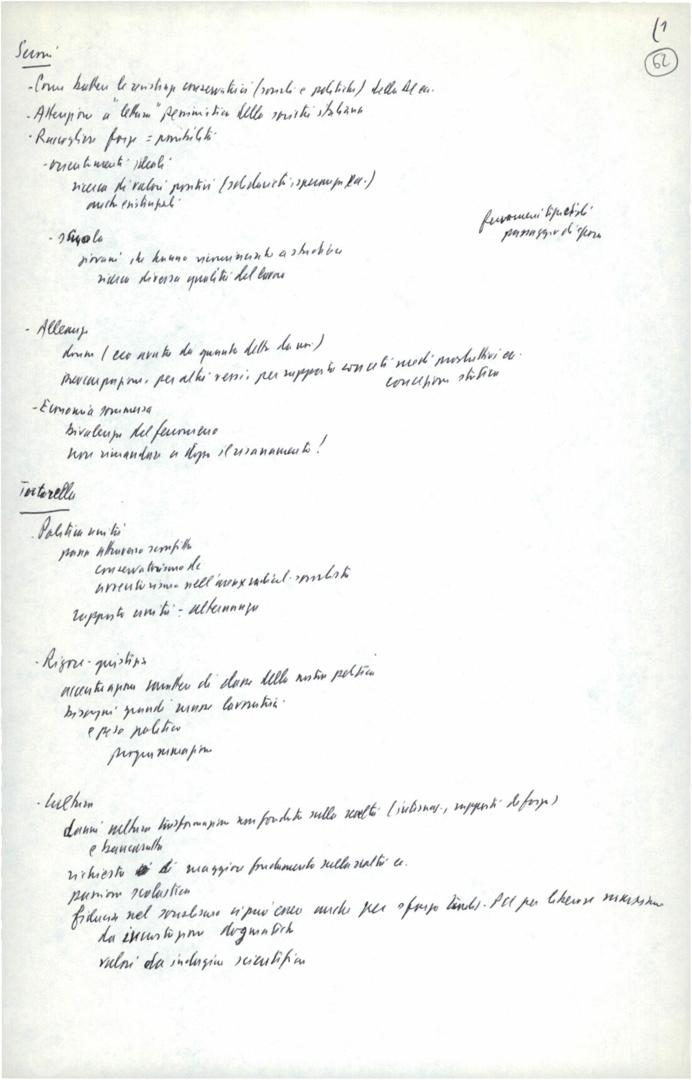 62
Seroni
- Come battere le resistenze conservatrici (sociali e politiche) della DC ecc.
- Attenzione a "lettura" pessimistica della società italiana
- Raccogliere forze = possibilità
- orientamenti ideali
ricerca di valori positivi (solidarietà, speranza ecc.)
anche esistenziali
fenomeni tipici di
passaggio d'epoca
- scuola
giovani che hanno ricominciato a studiare
ricerca diversa qualità del lavoro
- Alleanze
donne (eco avuta da quanto detto da noi)
preoccupazione, per altri versi, per rapporto con ceti medi produttivi ecc.
concezione statica
- Economia sommersa
Bivalenza del fenomeno
non rimandare a dopo il risanamento!
Tortorella
- Politica unità
passa attraverso sconfitta
conservatorismo dc
avventurismo nell'area radical-socialista
rapporto unità - alternanza
- Rigore - giustizia
accentuazione carattere di classe della nostra politica
bisogni grandi masse lavoratrici
e peso politico
programmazione
- Cultura
danni cultura trasformazione non fondata sulla realtà (internaz., rapporti di forza)
e bancarotta
richiesta di maggiore fondamento sulla realtà ecc.
passione scolastica
fiducia nel socialismo si può anche per sforzo PCI per liberare marxismo
da incrostazioni dogmatiche
valori da indagine scientifica